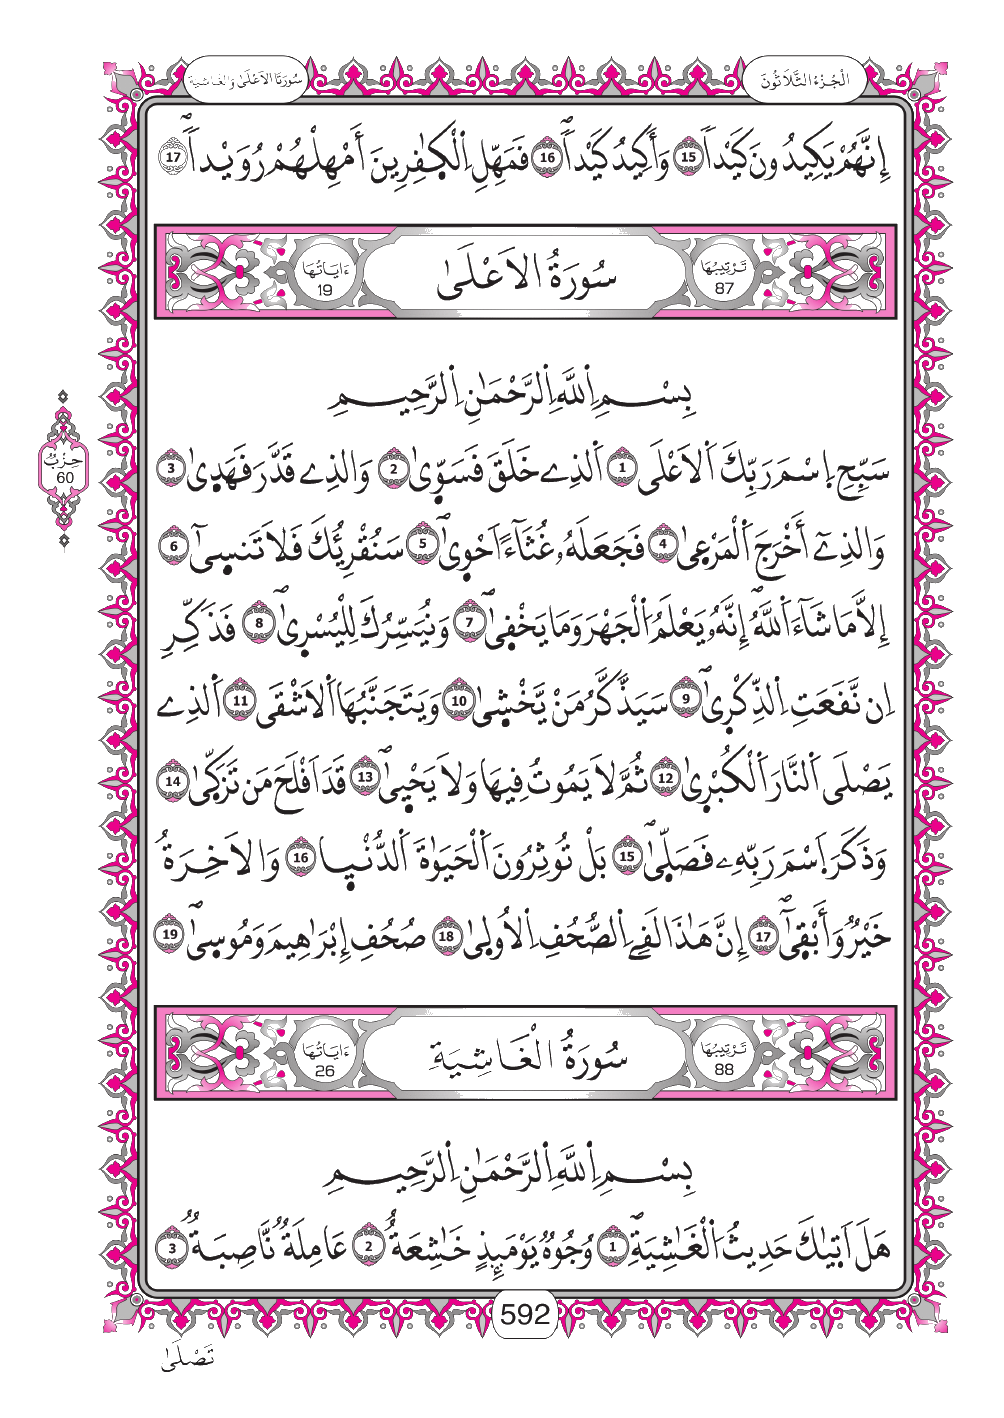 سُورَتَا الاَعْلَىٰ وَالغَاشِيَة
الْجُزْءُ الثَّلَاثُونَ
إِنَّهُمْ يَكِيدُونَ كَيْداٗ 15 وَأَكِيدُ كَيْداٗۖ 16 فَمَهِّلِ اِلْكٰفِرِينَ أَمْهِلْهُمْ رُوَيْداٗۖ 17
تَرْتِيبُهَا 87
سُورَةُ الاَعْلَىٰ
ءَايَاتُهَا 19
بِسْمِ اِللَّهِ اِلرَّحْمَـٰنِ اِلرَّحِيمِ
سَبِّحِ اِسْمَ رَبِّكَ اَلَاعْلَى 1 اَلذِے خَلَقَ فَسَوّ۪ىٰ 2 وَالذِے قَدَّرَ فَهَد۪ىٰ 3
وَالذِےٓ أَخْرَجَ اَلْمَرْع۪ىٰ 4 فَجَعَلَهُۥ غُثَآءً اَحْو۪ىٰۖ 5 سَنُقْرِئُكَ فَلَا تَنس۪ىٰٓ 6
حِزْبُ 60
إِلَّا مَا شَآءَ اَللَّهُۖ إِنَّهُۥ يَعْلَمُ اُلْجَهْرَ وَمَا يَخْف۪ىٰۖ 7 وَنُيَسِّرُكَ لِلْيُسْر۪ىٰۖ 8 فَذَكِّرِ
اِن نَّفَعَتِ اِلذِّكْر۪ىٰۖ 9 سَيَذَّكَّرُ مَنْ يَّخْش۪ىٰ 10 وَيَتَجَنَّبُهَا اَلَاشْقَى 11 اَلذِے
يَصْلَى اَلنَّارَ اَلْكُبْر۪ىٰ 12 ثُمَّ لَا يَمُوتُ فِيهَا وَلَا يَحْي۪ىٰۖ 13 قَدَ اَفْلَحَ مَن تَزَكّ۪ىٰ 14
وَذَكَرَ اَسْمَ رَبِّهِۦ فَصَلّ۪ىٰۖ 15 بَلْ تُوثِرُونَ اَلْحَيَوٰةَ اَلدُّنْي۪ا 16 وَالَاخِرَةُ
خَيْرٞ وَأَبْق۪ىٰٓۖ 17 إِنَّ هَـٰذَا لَفِے اِلصُّحُفِ اِلُاول۪ىٰ 18 صُحُفِ إِبْرَٰهِيمَ وَمُوس۪ىٰۖ 19
تَرْتِيبُهَا 88
سُورَةُ الْغَاشِيَةِ
ءَايَاتُهَا 26
بِسْمِ اِللَّهِ اِلرَّحْمَـٰنِ اِلرَّحِيمِ
هَلَ اَت۪ىٰكَ حَدِيثُ اُلْغَـٰشِيَةِۖ 1 وُجُوهٞ يَوْمَئِذٍ خَـٰشِعَةٌ 2 عَامِلَةٞ نَّاصِبَةٞ 3
592
تَصْلَىٰ